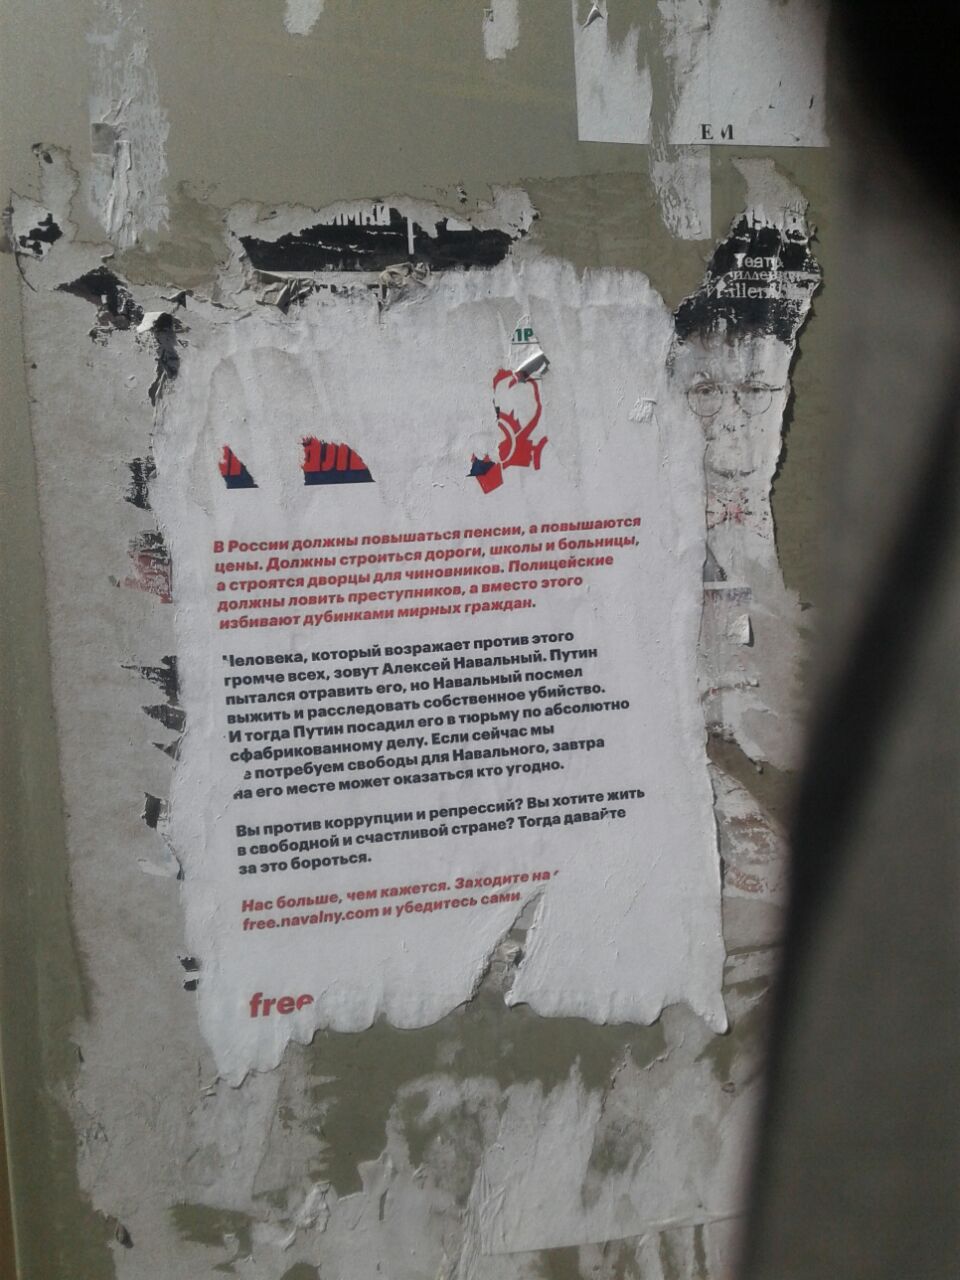 Е М
Театр
В России должны повышаться пенсии, а повышаются
цены. Должны строиться дороги, школы и больницы,
а строятся дворцы для чиновников. Полицейские
должны ловить преступников, а вместо этого
избивают дубинками мирных граждан.
Человека, который возражает против этого
громче всех, зовут Алексей Навальный. Путин
пытался отравить его, но Навальный посмел
выжить и расследовать собственное убийство.
И тогда Путин посадил его в тюрьму по абсолютно
сфабрикованному делу. Если сейчас мы
е потребуем свободы для Навального, завтра
на его месте может оказаться кто угодно.
Вы против коррупции и репрессий? Вы хотите жить
в свободной и счастливой стране? Тогда давайте
за это бороться.
Нас больше, чем кажется. Заходите на
free.navalny.com и убедитесь сами
free